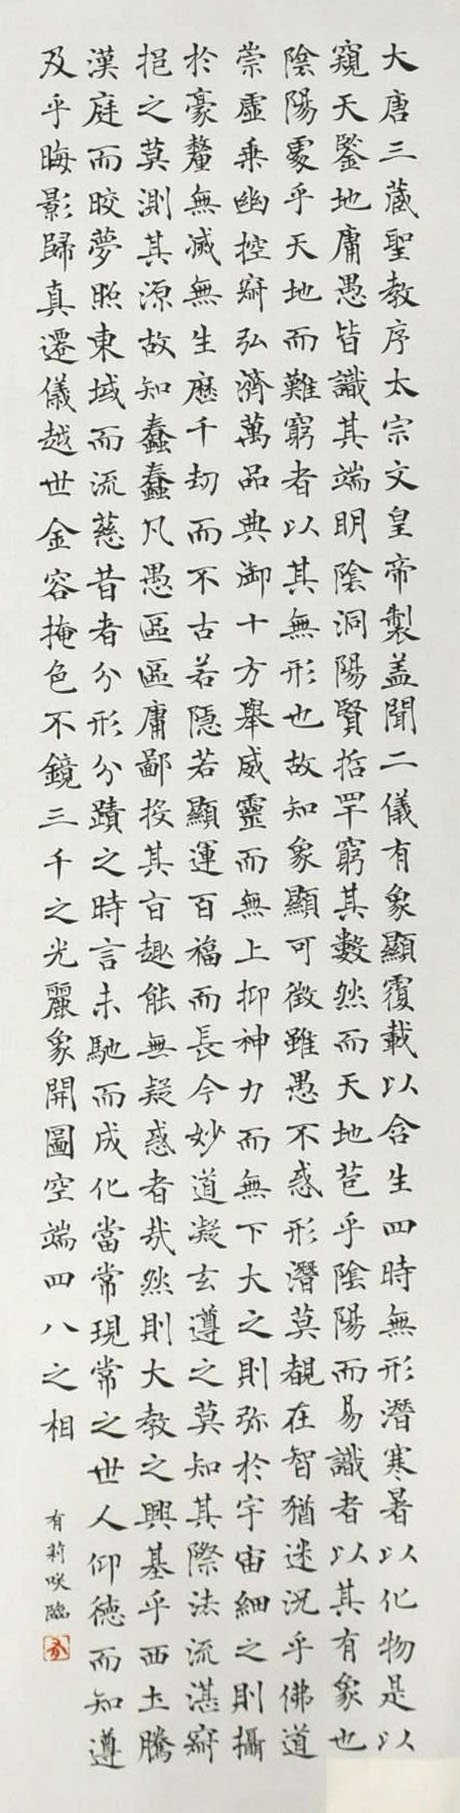 大唐三藏聖教序太宗文皇帝製盖聞二儀有象顯覆載以含生四時無形潛寒暑以化物是以
窺天鑒地庸愚皆識其端明陰洞陽賢哲罕窮其數然而天地苞乎陰陽而易識者以其有象也
陰陽處乎天地而難窮者以其無形也故知象顯可徵雖愚不惑形潛莫覩在智猶迷況乎佛道
崇虛乘幽控寂弘濟萬品典御十方舉威靈而無上抑神力而無下大之則弥於宇宙細之則攝
於豪釐無滅無生歷千劫而不古若隱若顯運百福而長今妙道凝玄遵之莫知其際法流湛寂
挹之莫測其源故知蠢蠢凡愚區區庸鄙投其旨趣能無疑惑者哉然則大教之興基乎西土騰
漢庭而皎夢照東域而流慈昔者分形分蹟之時言未馳而成化當常現常之世人仰德而知遵
及乎晦影歸真遷儀越世金容掩色不鏡三千之光麗象開圖空端四八之相
有莉咲臨